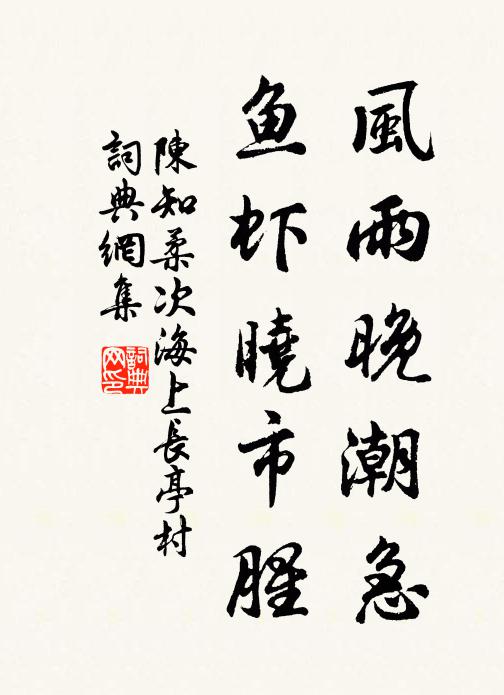 風雨晚潮急
鱼虾曉市腥
陳知柔次海上長亭村
詞典網集
詞典
网印